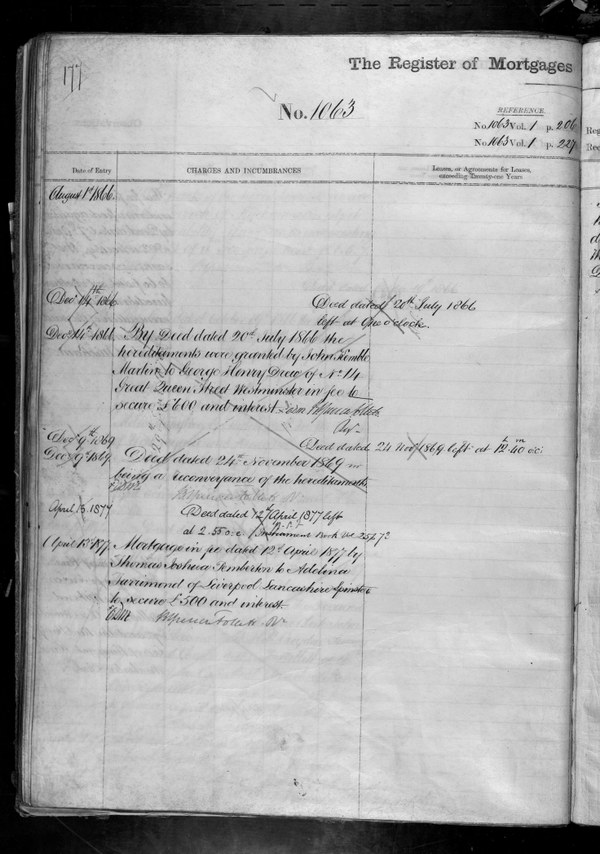 177
The Register of Mortgages
No. 1063
REFERENCE.
No. 1063 Vol. 1 p. 206
No. 1063 Vol. 1 p. 227
Date of Entry
CHARGES AND INCUMBRANCES
Leases, or Agreements for Leases,
exceeding Twenty-one Years
August 1st 1866
Decr 14th 1866
Deed dated 20th July 1866
left at One o'clock.
Decr 14th 1866 By Deed dated 20th July 1866 the
hereditaments were granted by John Kemble
Martin to George Henry Drew of No 14
Great Queen Street Westminster in fee to
secure £600 and interest
Decr 9th 1869
Deed dated 24 Novr 1869 left at 12h 40m oc:
Decr 9th 1869 Deed dated 24th November 1869
being a reconveyance of the hereditaments
April 13. 1877 Deed dated 12th April 1877 left
at 2.55 o.c. Instrument Book
April 13th 1877 Mortgage in fee dated 12th April 1877 by
Thomas Joshua Pemberton to Adelina
of Liverpool Lancashire Spinster
to secure £500 and interest